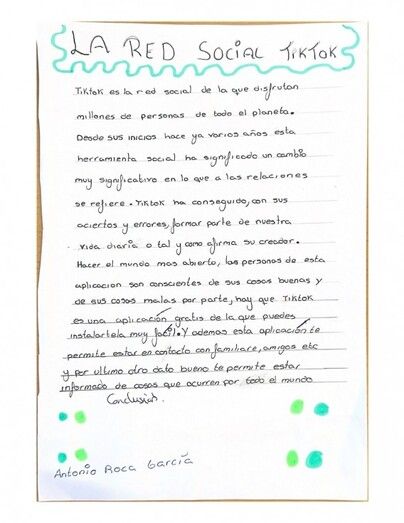 LA RED SOCIAL TIKTOK
TikTok es la red social de la que disfrutan
millones de personas de todo el planeta.
Desde sus inicios hace ya varios años esta
herramienta social ha significado un cambio
muy significativo en lo que a las relaciones
se refiere. TikTok ha conseguido, con sus
aciertos y errores, formar parte de nuestra
vida diaria o tal y como afirma su creador.
Hacer el mundo mas abierto, las personas de esta
aplicacion son conscientes de sus cosas buenas y
de sus cosas malas por parte, hay que TikTok
es una aplicación gratis de la que puedes
instalartela muy facil. Y ademas esta aplicación te
permite estar en contacto con familiare, amigos etc
y por ultimo otro dato bueno te permite estar
informado de cosas que ocurren por todo el mundo
Conclusión.
Antonio Roca García